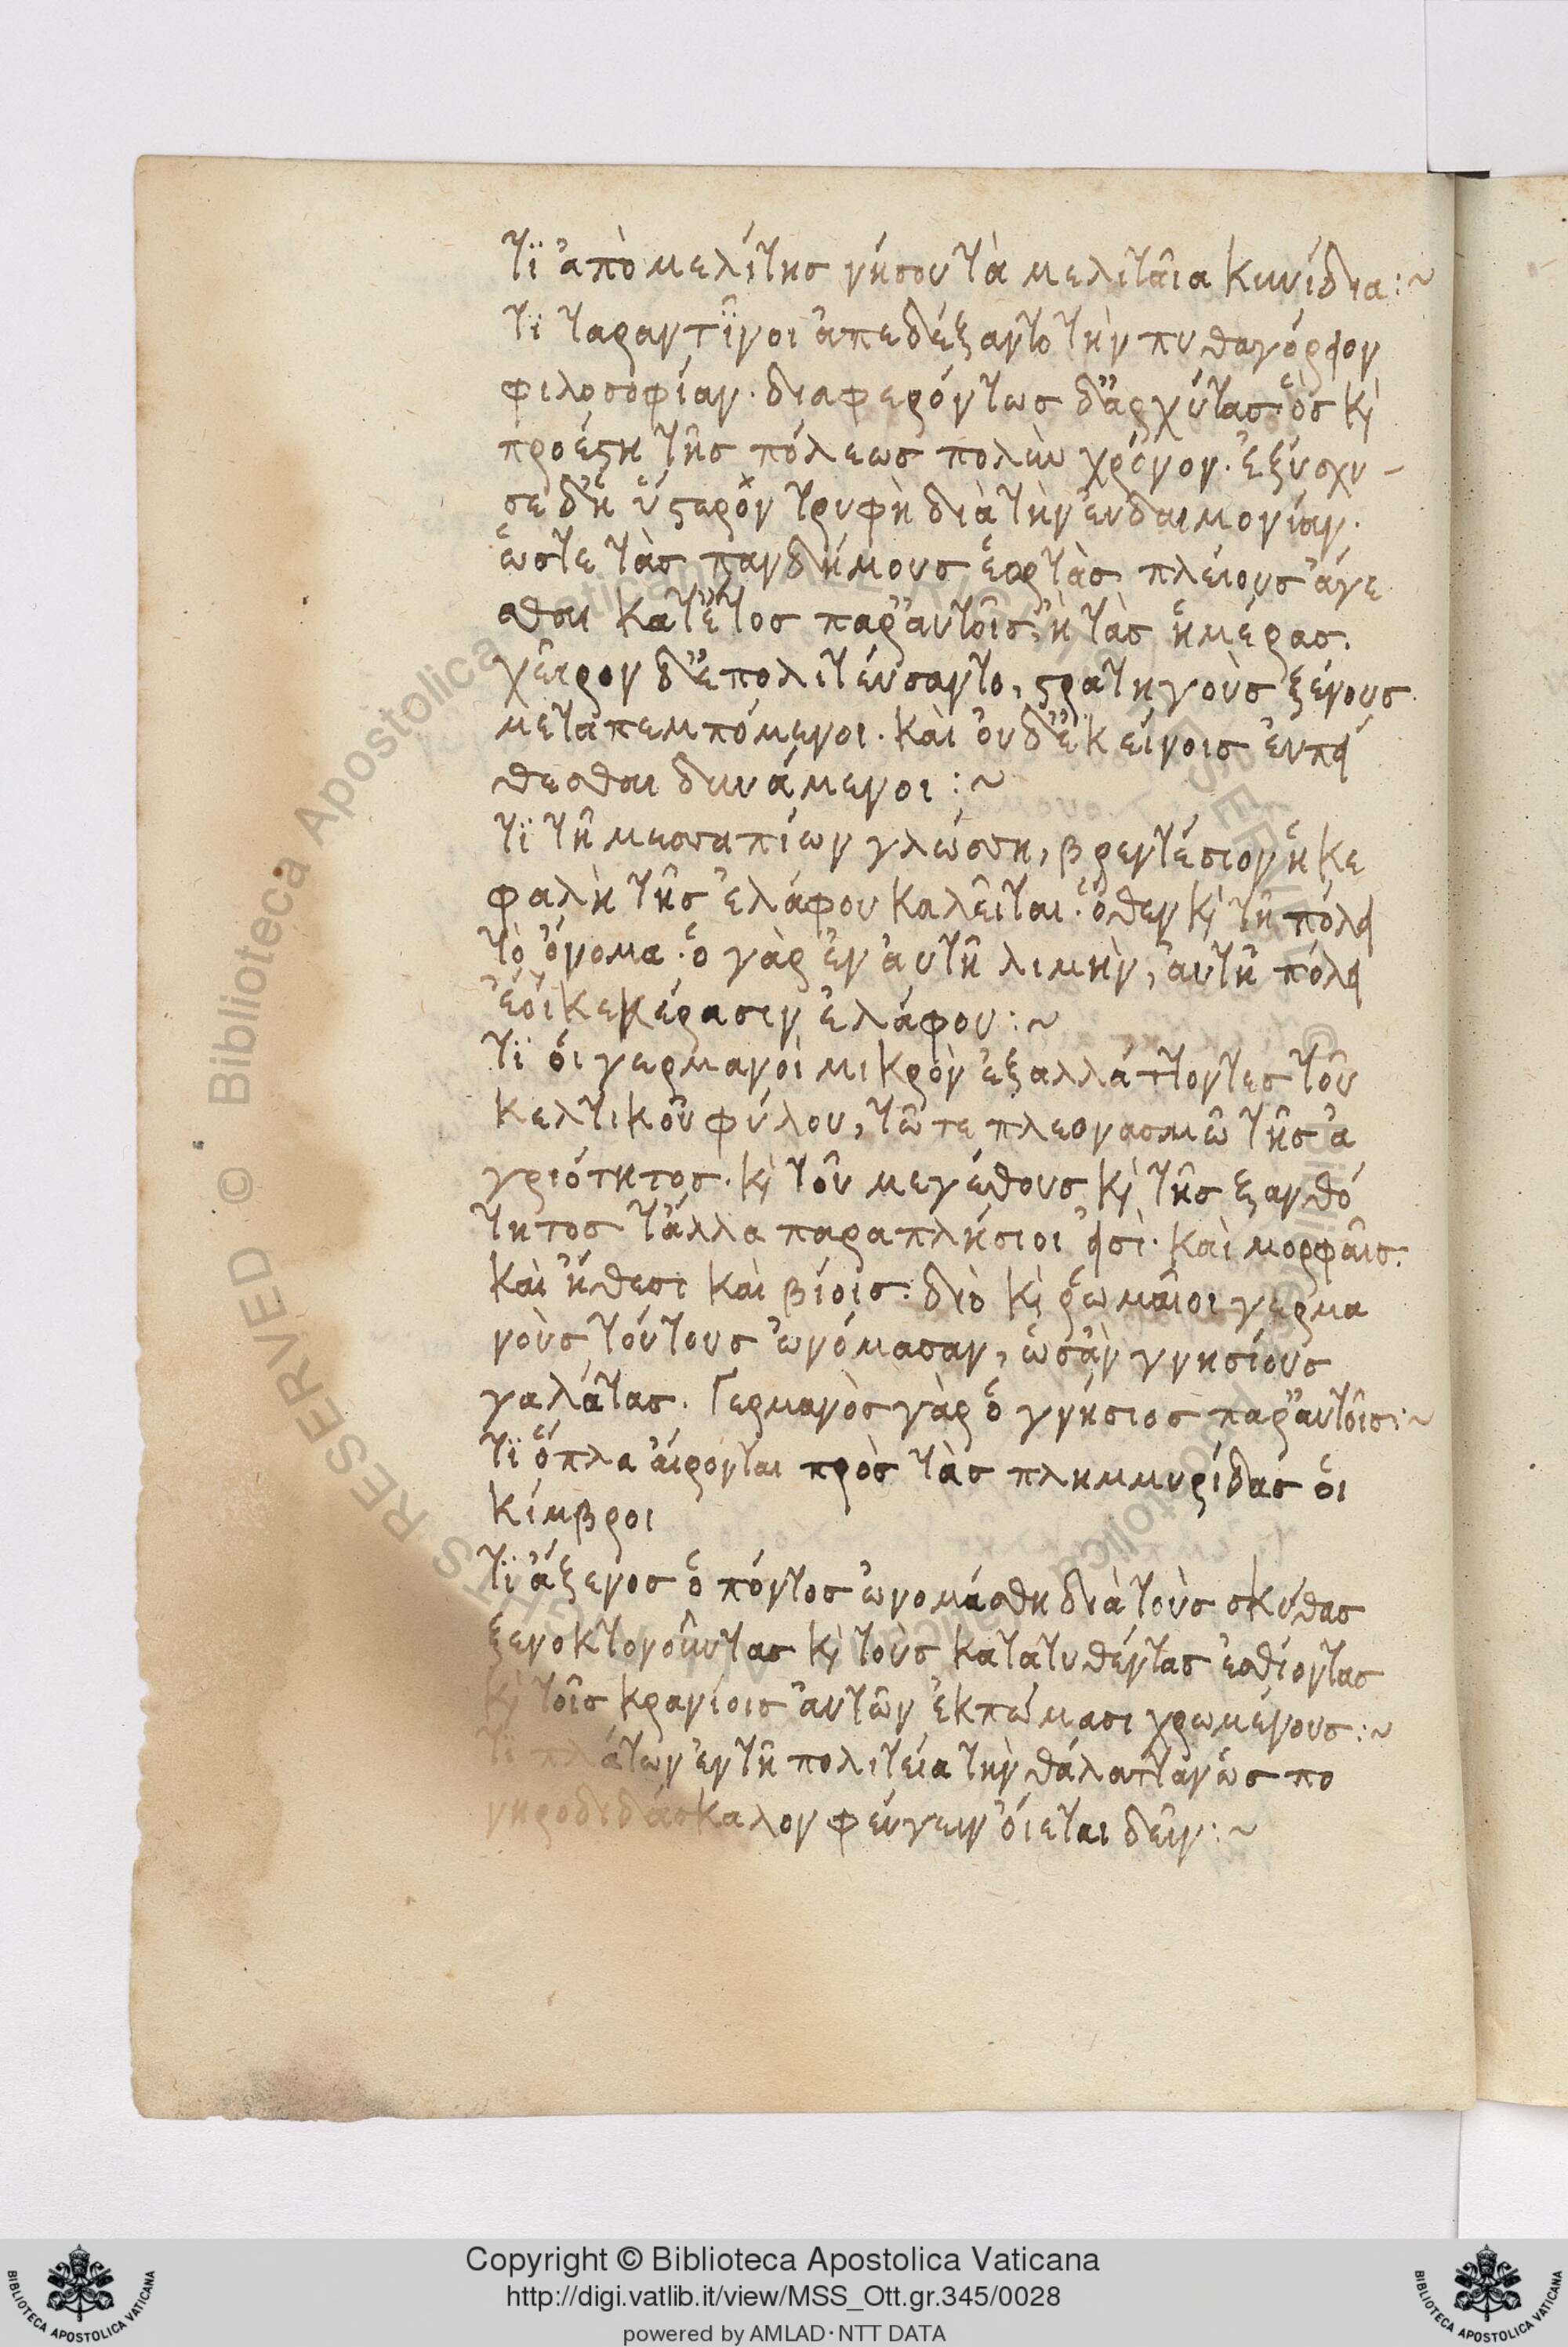 Ὅτι ἀπὸ μελίτης νήσου τὰ μελιταῖα κυνίδια :~
Ὅτι ταραντῖνοι ἀπεδέξαντο τὴν πυθαγόρειον
φιλοσοφίαν· διαφερόντως δ' ἀρχύτας· ὃς κὶ
προέστη τῆς πόλεως πολὺν χρόνον. ἐξίσχυ-
σε δ' ἡ ὕστερον τρυφὴ διὰ τὴν ἐυδαιμονίαν.
ὥστε τὰς πανδήμους ἑορτὰς πλείους ἄγε
σθαι κατ' ἔτος παρ' αὐτοῖς, ἢ τὰς ἡμέρας.
χεῖρον δ' ἐπολιτεύσαντο, στρατηγοὺς ξένους
μεταπεμπόμενοι. καὶ ὀυδ' ἐκείνοις ἐυπεί
θεσθαι δυνάμενοι :~
Ὅτι τῆ μεσσαπίων γλώσση, βρεντέσιον ἡ κε
φαλὴ τῆς ἐλάφου καλεῖται. ὅθεν κὶ τῆ πόλει
τὸ ὄνομα· ὁ γὰρ ἐν ἀυτῆ λιμὴν, ἀυτῆ πόλει
ἔοικε κέρασιν ἐλάφου :~
Ὅτι ὁι γερμανοὶ μικρὸν ἐξαλλάττοντες τοῦ
κελτικοῦ φύλου, τῶ τε πλεονασμῶ τῆς ἀ
γριότητος. κὶ τοῦ μεγέθους κὶ τῆς ξανθό
τητος τἄλλα παραπλήσιοι εἰσὶ. καὶ μορφαῖς.
καὶ ἤθεσι καὶ βίοις. διὸ κὶ ῥωμαῖοι γερμα
νοὺς τούτους ὠνόμασαν, ὡσὰν γνησίους
γαλάτας. Γερμανὸς γὰρ ὁ γνήσιος παρ' αὐτοῖς :~
Ὅτι ὅπλα ἄιρονται πρὸς τὰς πλημμυρίδας ὁι
κίμβροι
Ὅτι ἄξενος ὁ πόντος ὠνομάσθη διὰ τοὺς σκύθας
ξενοκτονοῦντας κὶ τοὺς κατατυθέντας ἐσθίοντας
κὶ τοῖς κρανίοις ἀυτῶν ἐκπώμασι χρωμένους :~
Ὅτι πλάτων ἐν τῆ πολιτεία τὴν θάλατταν ὡς πο
νηροδιδάσκαλον φεύγειν ὄιεται δεῖν :~
Copyright © Biblioteca Apostolica Vaticana
http://digi.vatlib.it/view/MSS_Ott.gr.345/0028
powered by AMLAD · NTT DATA
BIBLIOTECA APOSTOLICA VATICANA
BIBLIOTECA APOSTOLICA VATICANA